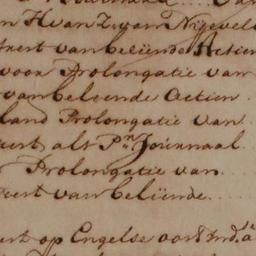 n H van Z. van Nijevel
trert van beleende Actien
voor Prolongatie van
van beleende Actien
land Prolongatie van
eert als P.n Journaal
Prolongatie van
eert van beleende
ert op Engelse oost Ind.